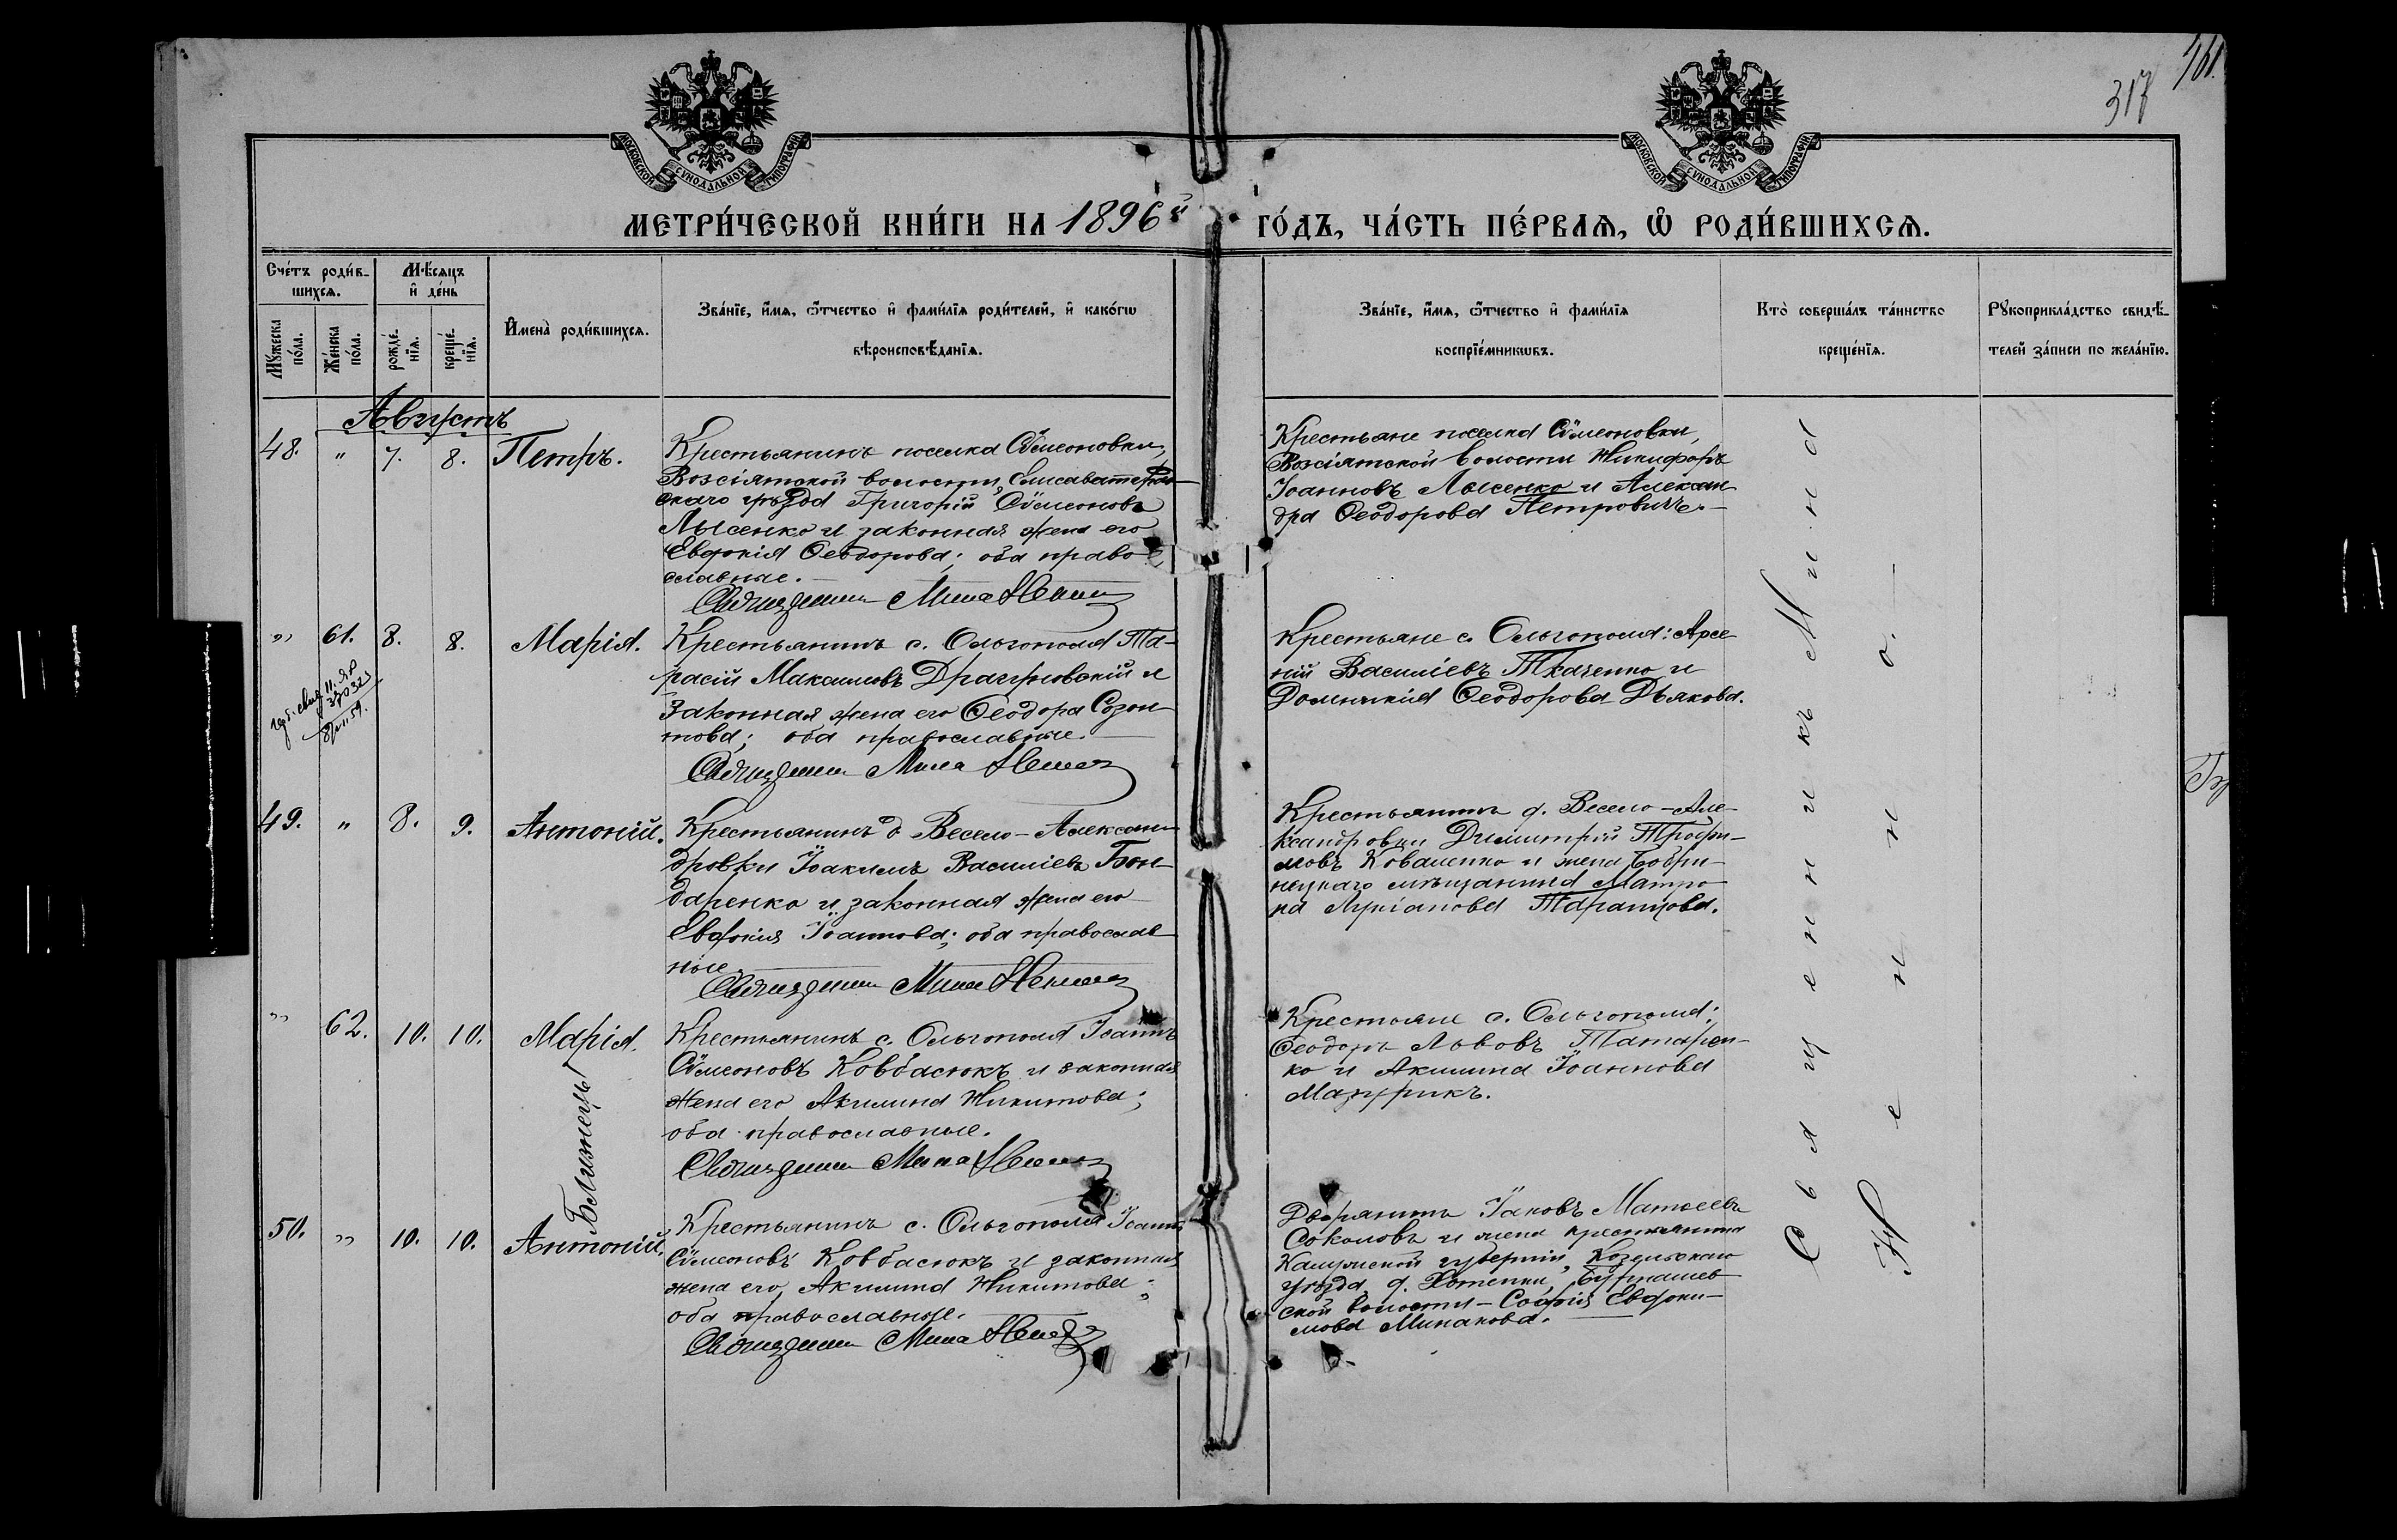 461.
317
МОСКОВСКОЙ СѴНОДАЛЬНОЙ ТИПОГРАФІИ
МОСКОВСКОЙ СѴНОДАЛЬНОЙ ТИПОГРАФІИ
МЕТРИ́ЧЕСКОЙ КНИ́ГИ НА 1896й ГО́ДЪ, ЧА́СТЬ ПЕ́РВАѦ, Ѡ҆ РОДИ́ВШИХСѦ.
Сче́тъ роди́в-
шихсѧ.
Мꙋ́жеска по́ла.
Же́нска по́ла.
Мѣ́сѧцъ
и҆ де́нь
рожде́-
нїѧ.
креще́-
нїѧ.
И҆мена̀ роди́вшихсѧ.
Зва́нїе, и҆́мѧ, ѻ҆́тчество и҆ фами́лїѧ роди́телей, и҆ како́гѡ
вѣроисповѣ́данїѧ.
Зва́нїе, и҆́мѧ, ѻ҆́тчество и҆ фами́лїѧ
воспрїе́мникѡвъ.
Кто̀ соверша́лъ та́инство
креще́нїѧ.
Рꙋкоприкла́дство свидѣ́-
телей за́писи по жела́нїю.
Августъ
48. " 7. 8. Петръ.
Крестьянинъ поселка Сѵмеоновки,
Возсіятской волости, Елисаветград-
скаго уѣзда Григорій Сѵмеоновъ
Лысенко и законная жена его
Евдокія Ѳеодорова; оба право-
славные.
Священникъ Мина
Крестьяне поселка Сѵмеоновки,
Возсіятской волости Никифоръ
Іоанновъ Лысенко и Алексан-
дра Ѳеодорова Петровиче.-
" 61. 8. 8. Марія.
Крестьянинъ с. Ольгополя Та-
расій Максимовъ Драгуновскій и
законная жена его Ѳеодора Созон-
това; оба православные.
Священникъ Мина
Крестьяне с. Ольгополя: Арсе-
ній Василіевъ Ткаченко и
Домникія Ѳеодорова Дьякова.
49. " 8. 9. Антоній.
Крестьянинъ д. Весело-Алексан-
дровки Іоакимъ Василіевъ Бон-
даренко и законная жена его
Евдокія Іоаннова; оба православ-
ные.
Священникъ Мина
Крестьянинъ д. Весело-Але-
ксандровки Димитрій Трофи-
мовъ Коваленко и жена Бобри-
нецкаго мѣщанина Матро-
на Лукіанова Таранцова.
" 62. 10. 10. Марія.
Близнецы
Крестьянинъ с. Ольгополя Іоаннъ
Сѵмеоновъ Ковбасюкъ и законная
жена его Акилина Никитова;
оба православные.
Священникъ Мина
Крестьяне с. Ольгополя:
Ѳеодоръ Львовъ Татарен-
ко и Акилина Іоаннова
Мазурикъ.
50. " 10. 10. Антоній.
Крестьянинъ с. Ольгополя Іоаннъ
Сѵмеоновъ Ковбасюкъ и законная
жена его, Акилина Никитова;
оба православные.
Священникъ Мина
Дворянинъ Іаковъ Матѳеевъ
Соколовъ и жена крестьянина
Калужской губерніи, Козельскаго
уѣзда, д. Хотенки, Бурнашев-
ской волости - Софія Евдоки-
мова Минакова.
Священникъ Мина